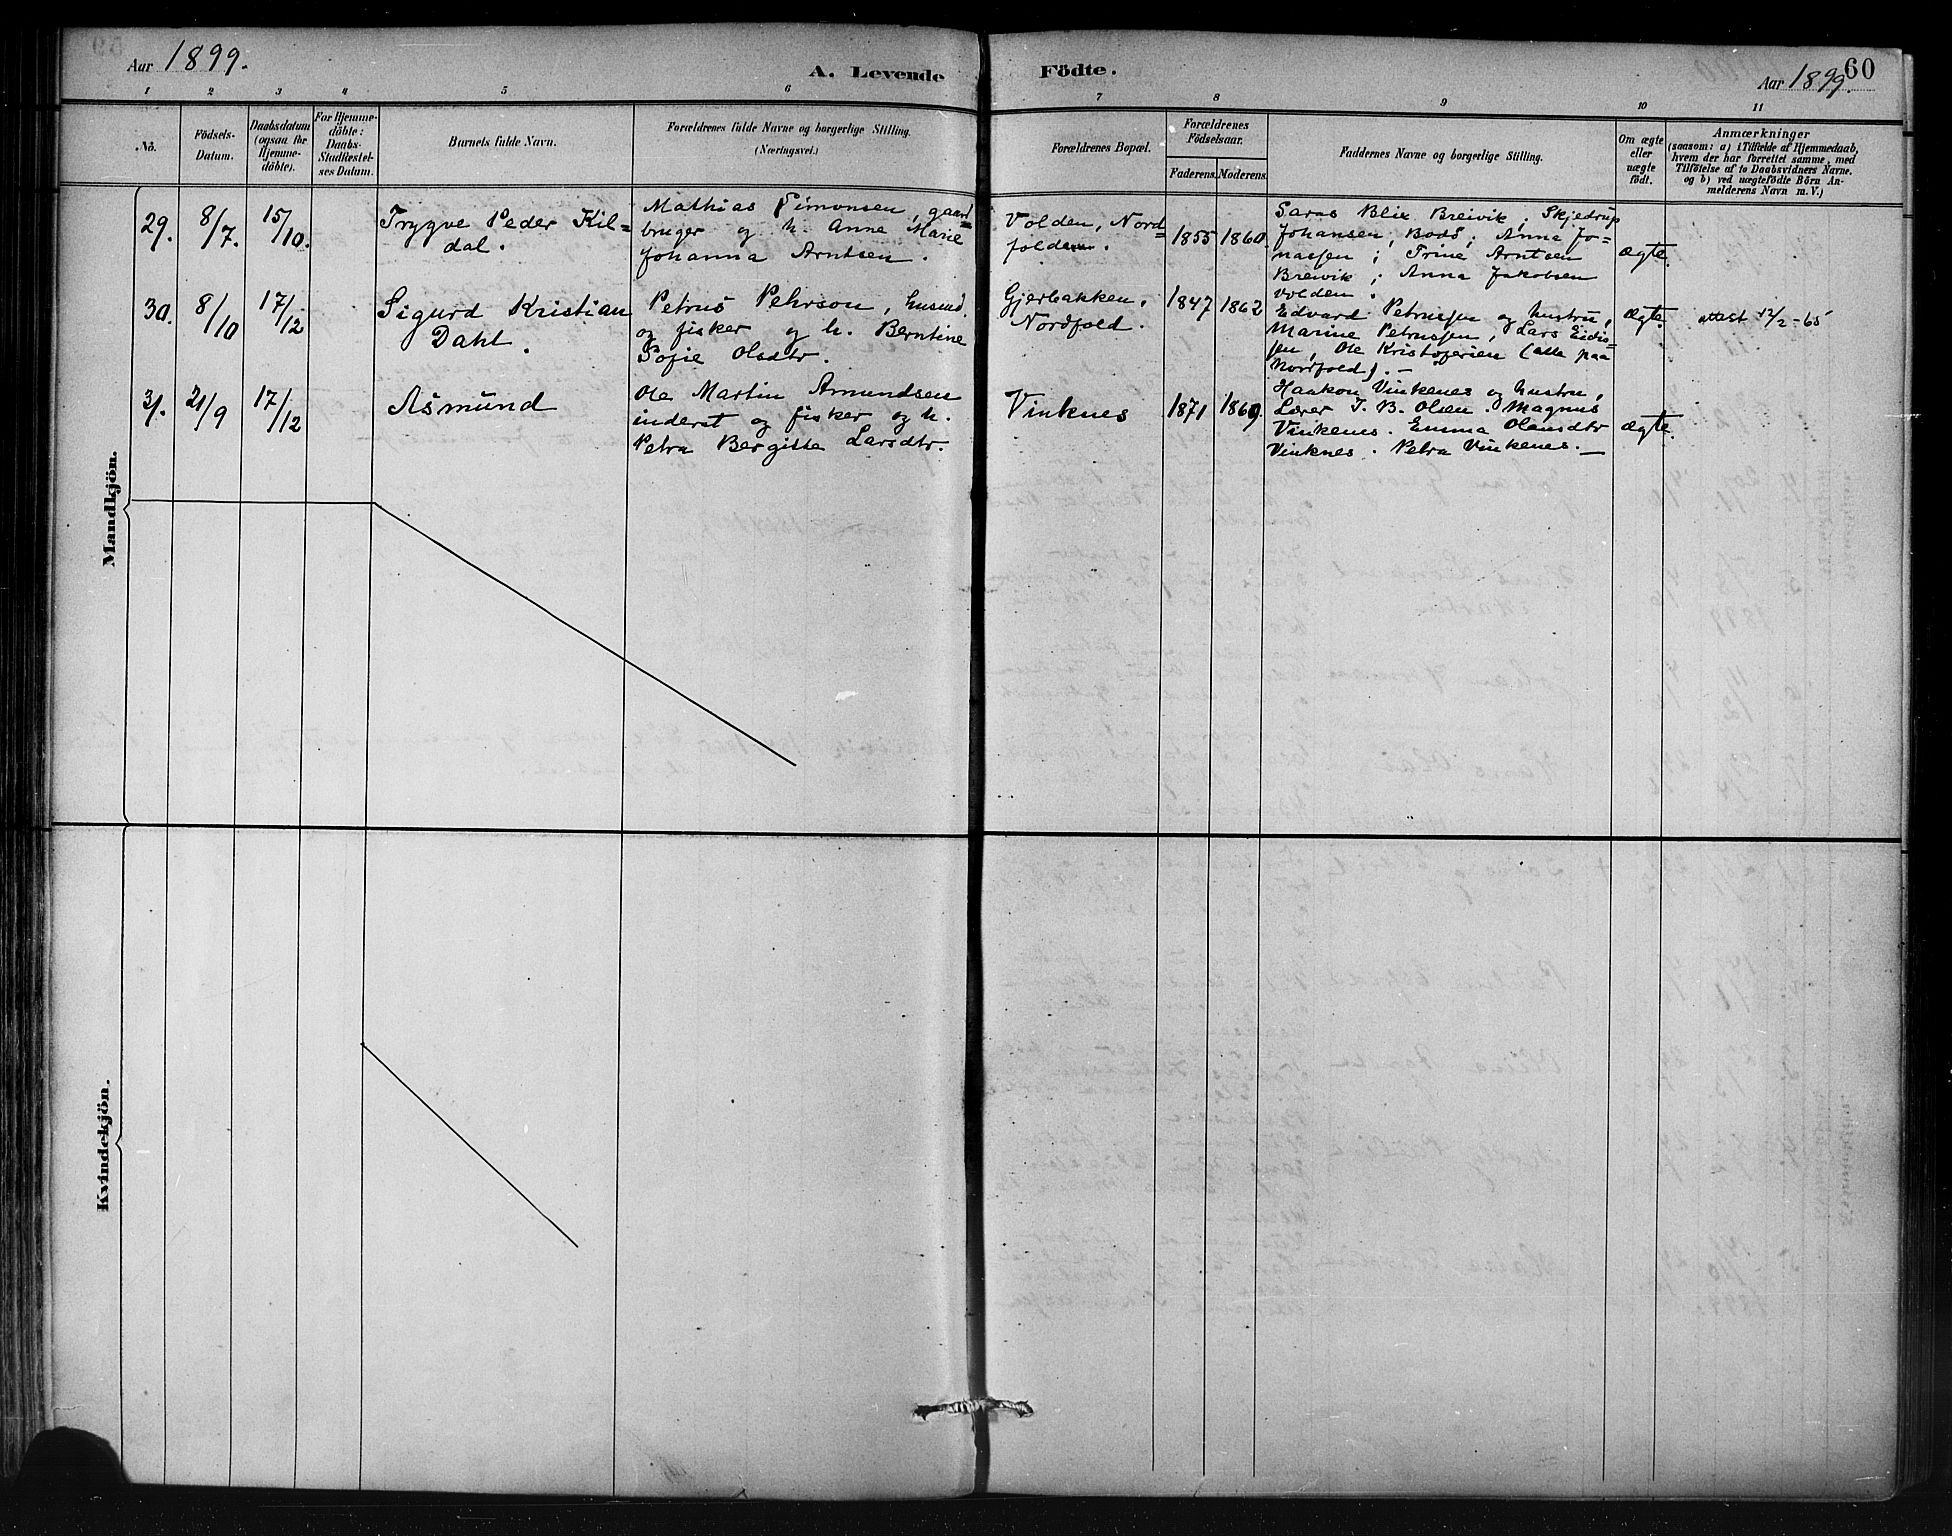 Aar 1899.
A. Levende
Födte.
Aar 1899.
60
1 2 3 4 5 6 7 8 9 10 11
No.
Födsels-
Datum.
Daabsdatum
(ogsaa for
Hjemme-
døbte).
For Hjemme-
døbte:
Daabs-
Stadfæstel-
ses Datum.
Barnets fulde Navn.
Forældrenes fulde Navne og borgerlige Stilling.
(Næringsvei.)
Forældrenes Bopæl.
Forældrenes
Födselsaar.
Faderens.
Moderens.
Faddernes Navne og borgerlige Stilling.
Om ægte
eller
uægte
født.
Anmærkninger
(saasom: a) i Tilfælde af Hjemmedaab,
hvem der har forrettet samme, med
Tilføielse af to Daabsvidners Navne,
og b) ved uægtefødte Börn An-
melderens Navn m. V.)
Mandkjön.
29.
8/7.
15/10.
Trygve Peder Kil=
dal.
Mathias Simonsen, gaard=
bruger og h. Anne Marie
Johanna Arntsen.
Volden, Nord=
folden.
1855
1860.
Saras Blix Breivik; Skjedrup
Johansen, Bodö; Anna Jo=
nassen; Trine Arntsen
Breivik; Anna Jakobsen
Volden.
Ægte.
30.
8/10
17/12
Sigurd Kristian
Dahl.
Petrus Pehrson, husmd.
og fisker og h. Berntine
Sofie Olsdtr.
Gjerbakken,
Nordfold.
1847
1862
Edvard Petrussen og hustru,
Marine Petrussen, Lars Eidis=
sen, Ole Kristofersen (alle paa
Nordfold). —
Ægte.
attest 12/2-65
31.
21/9
17/12
Asmund
Ole Martin Amundsen
inderst og fisker og h.
Petra Bergitte Larsdtr.
Vinknes
1871
1869.
Haakon Vinkenes og hustru,
Lærer J. B. Olsen. Magnus
Vinkenes. Emma Olausdtr
Vinknes. Petra Vinkenes. —
Ægte.
Kvindekjön.